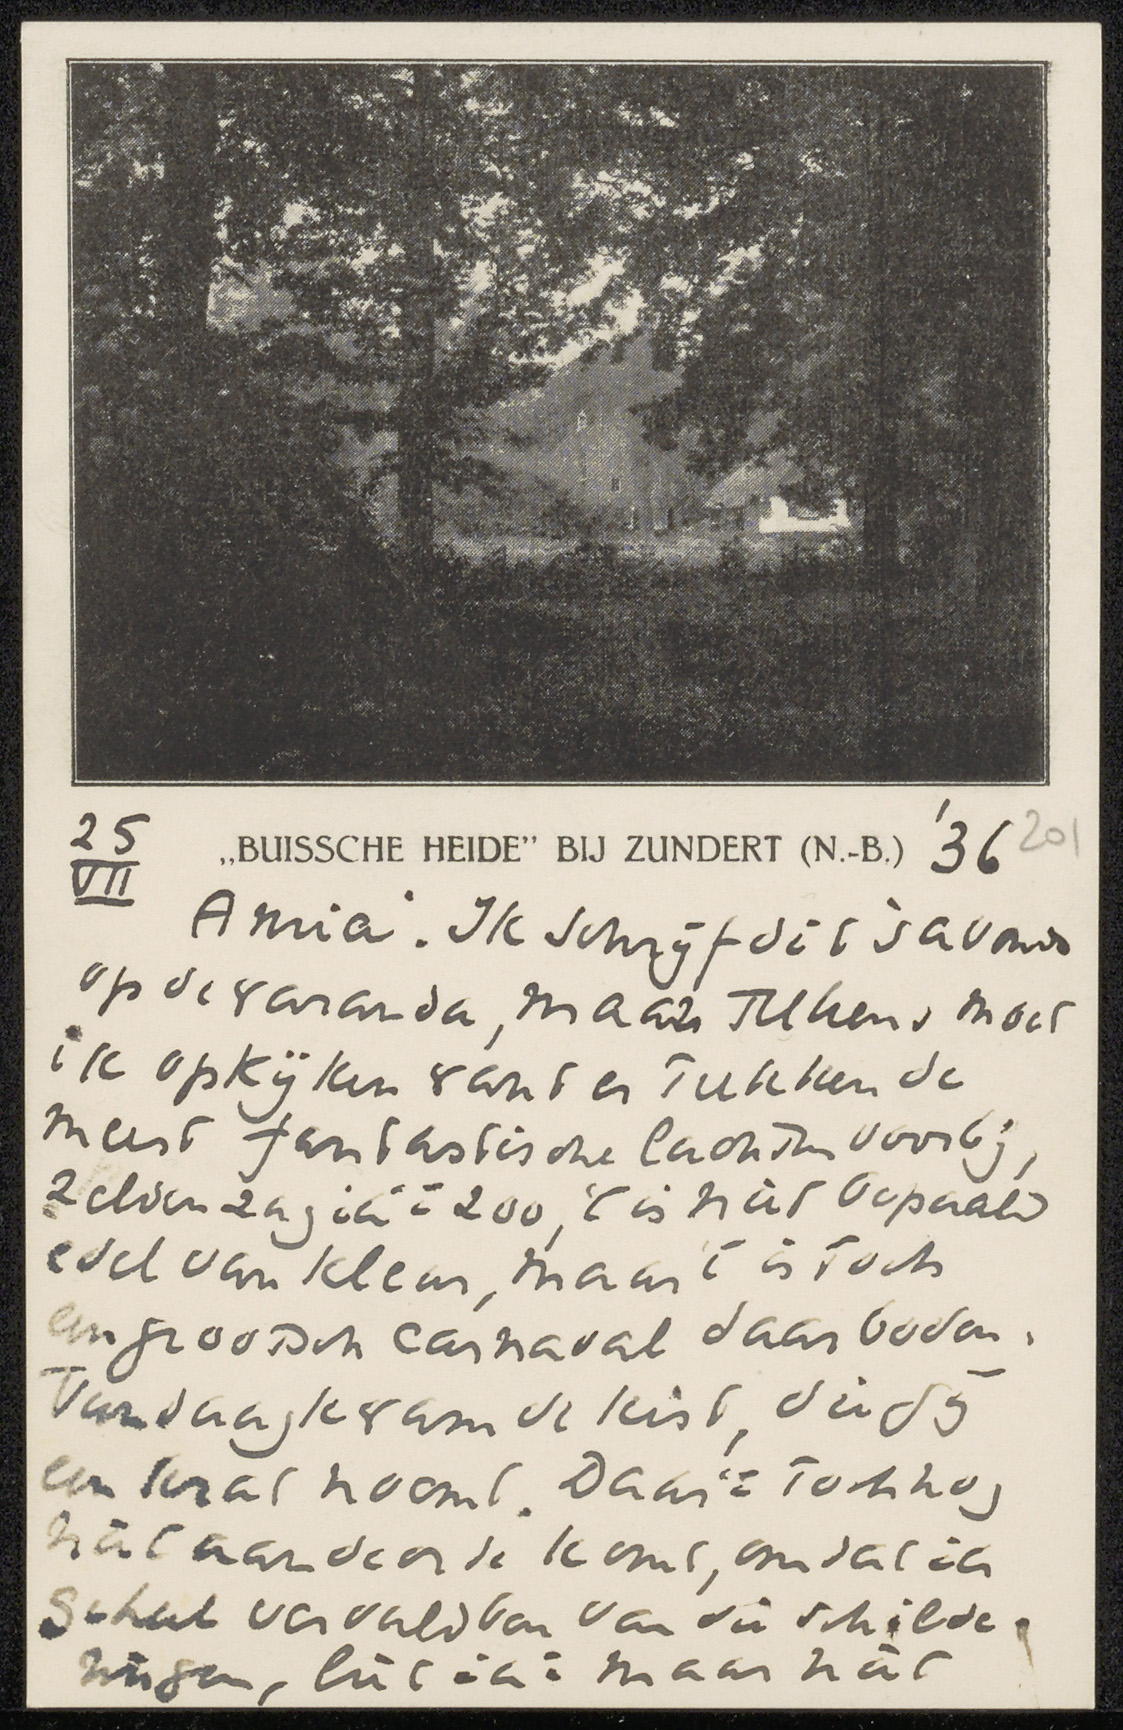 25
VII
„BUISSCHE HEIDE” BIJ ZUNDERT (N.-B.)
'36
201
Amia. Ik schrijf dit 's avonds
op de waranda, maar telkens moet
ik opkijken want er trekken de
meest fantastische luchten voorbij,
zelden zag ik ze zoo, 't is niet bepaald
edel van kleur, maar 't is toch
een grootsch carnaval daarboven.
Vandaag kwam de kist, die gij
een krat noemt. Daar ze toch nog
niet aan de orde komt, omdat ik
geheel vervuld ben van die schilde-
ringen, liet ik ze maar niet